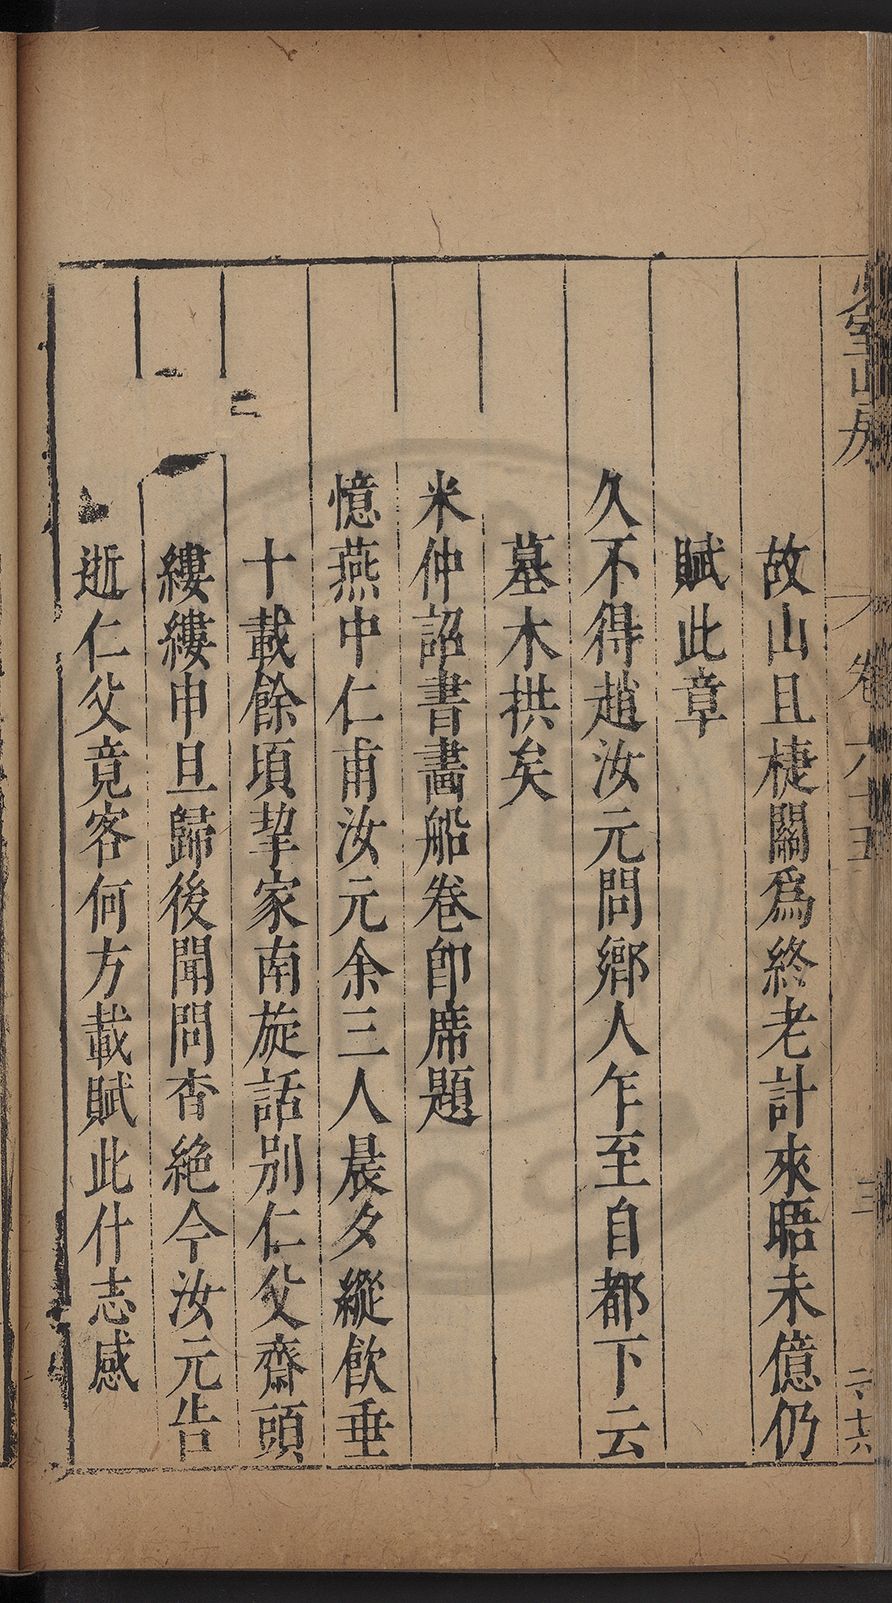 少室山房
卷六十五
三
二十六
故山且棲關爲終老計來晤未億仍
賦此章
久不得趙汝元問鄉人乍至自都下云
墓木拱矣
米仲詔書畵船卷卽席題
憶燕中仁甫汝元余三人晨夕縱飲垂
十載餘頃挈家南旋話別仁父齋頭
縷縷申旦歸後聞問杳絶今汝元告
逝仁父竟客何方載賦此什志感